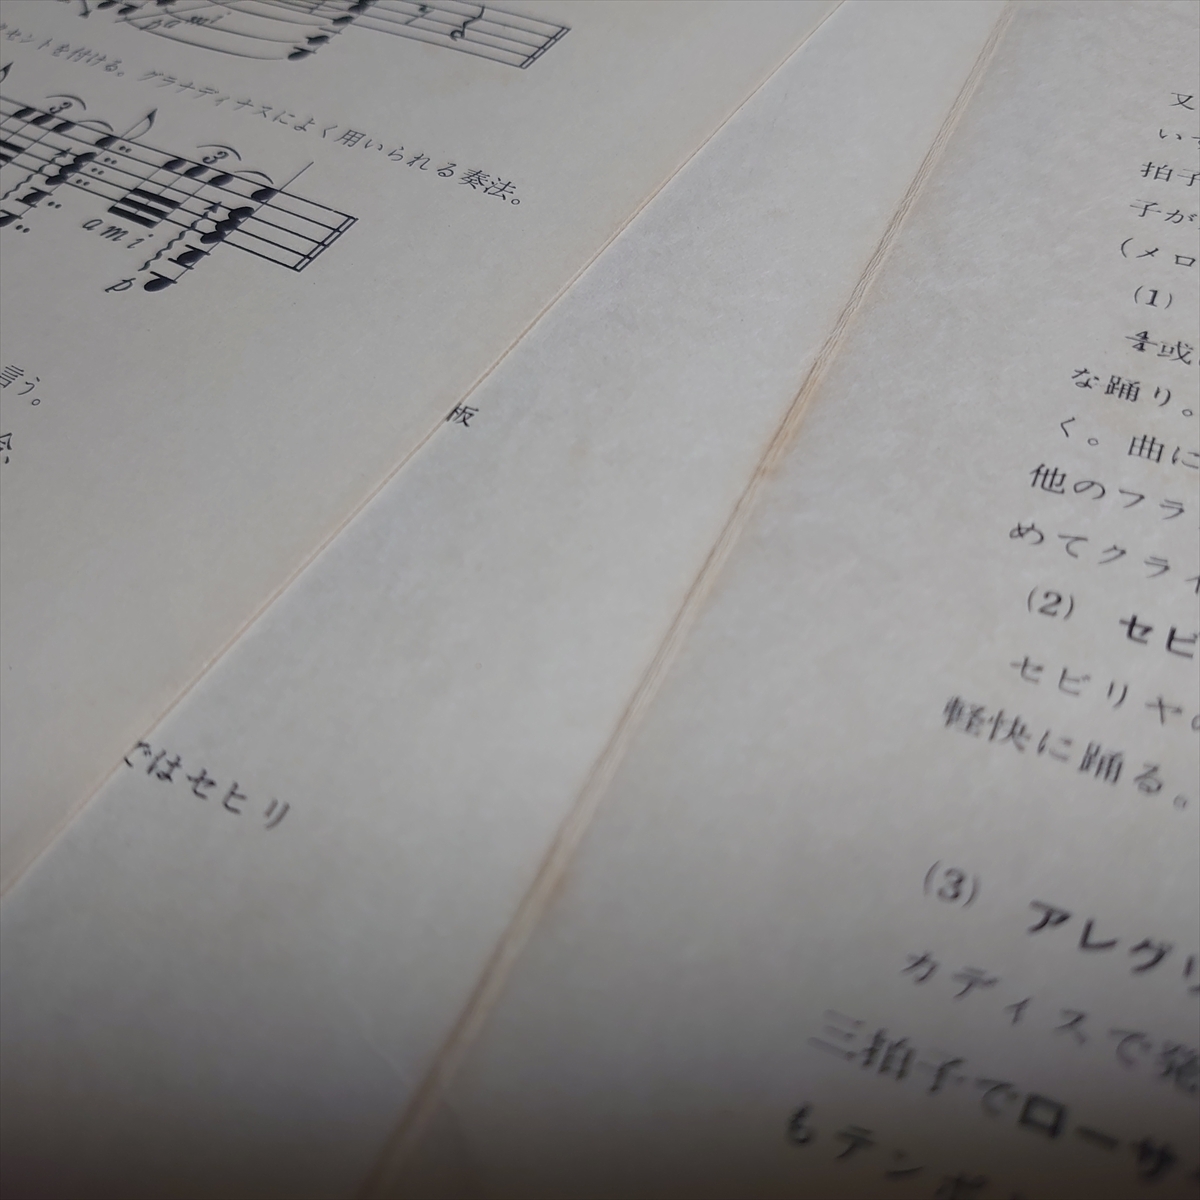 pami
セントを付ける。グラナディナスによく用いられる奏法。
3
3
ami
p
言う。
板
ではセヒリ
又
い
拍子
子が
(メロ
(1)
4或
な踊り。
く。曲に
他のフラ
めてクライ
(2) セビ
セビリヤの
軽快に踊る。
(3) アレグリ
カディスで発
三拍子でローサ
もテンポ